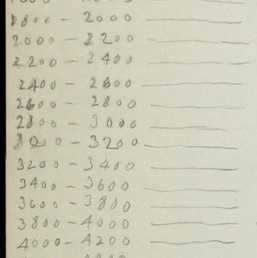 1800 - 2000
2000 - 2200
2200 - 2400
2400 - 2600
2600 - 2800
2800 - 3000
3000 - 3200
3200 - 3400
3400 - 3600
3600 - 3800
3800 - 4000
4000 - 4200